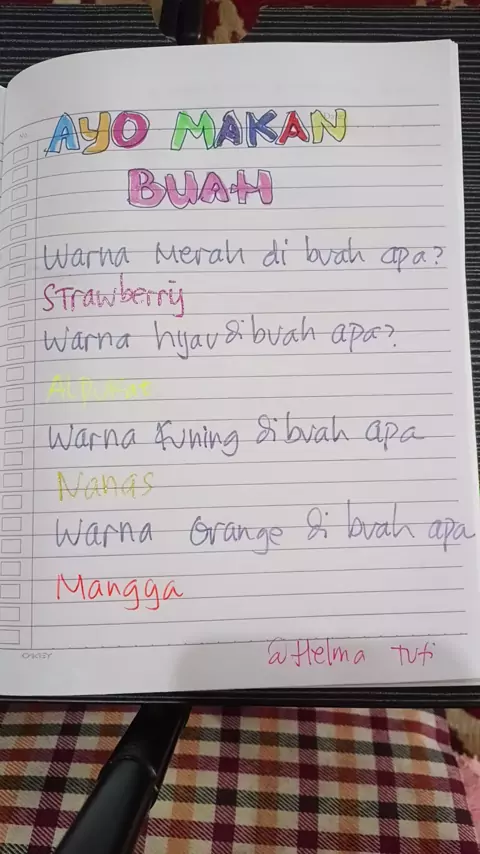 AYO MAKAN
BUAH
Warna Merah di buah apa?
Strawberry
Warna hijau di buah apa?
Alpukat
Warna Kuning di buah apa
Nanas
Warna Orange di buah apa
Mangga
@Helma Tuti